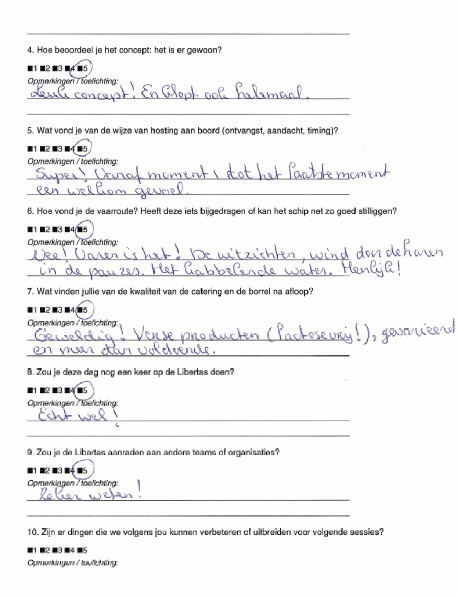 4. Hoe beoordeel je het concept: het is er gewoon?
■1 ■2 ■3 ■4 ■5
Opmerkingen / toelichting:
Leuk concept! En klopt ook helemaal.
5. Wat vond je van de wijze van hosting aan boord (ontvangst, aandacht, timing)?
■1 ■2 ■3 ■4 ■5
Opmerkingen / toelichting:
Super! Vanaf moment 1 tot het laatste moment
een welkom gevoel.
6. Hoe vond je de vaarroute? Heeft deze iets bijgedragen of kan het schip net zo goed stilliggen?
■1 ■2 ■3 ■4 ■5
Opmerkingen / toelichting:
Nee! Varen is het! De uitzichten, wind door de haren
in de pauzes. Het kabbelende water. Heerlijk!
7. Wat vinden jullie van de kwaliteit van de catering en de borrel na afloop?
■1 ■2 ■3 ■4 ■5
Opmerkingen / toelichting:
Geweldig! Verse producten (lactosevrij!), gevarieerd
en meer dan voldoende.
8. Zou je deze dag nog een keer op de Libertas doen?
■1 ■2 ■3 ■4 ■5
Opmerkingen / toelichting:
Echt wel!
9. Zou je de Libertas aanraden aan andere teams of organisaties?
■1 ■2 ■3 ■4 ■5
Opmerkingen / toelichting:
Zeker weten!
10. Zijn er dingen die we volgens jou kunnen verbeteren of uitbreiden voor volgende sessies?
■1 ■2 ■3 ■4 ■5
Opmerkingen / toelichting: